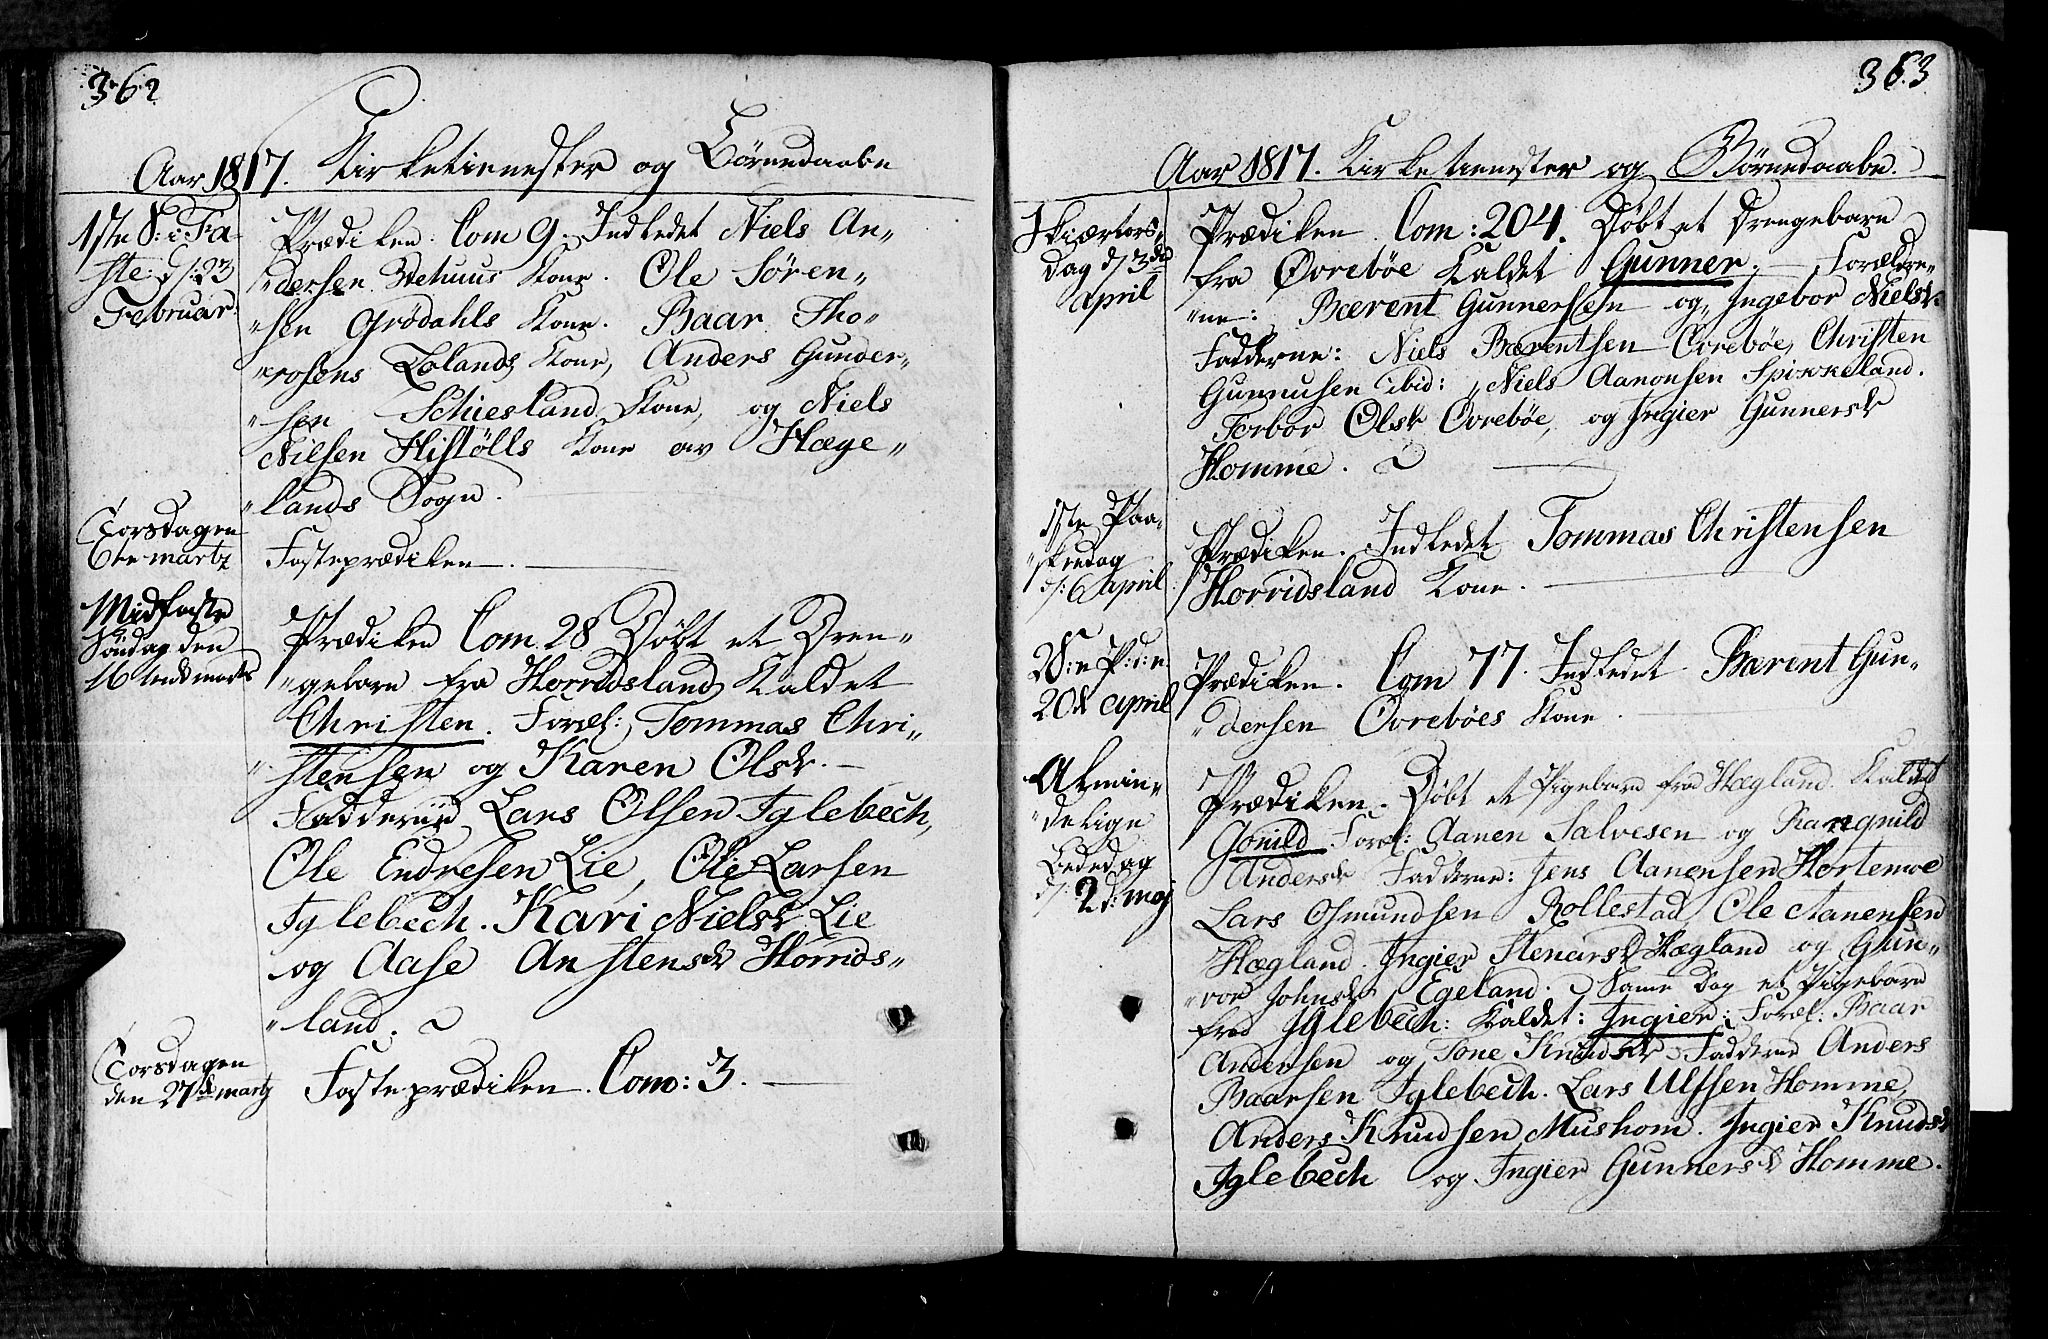 362
Aar 1817. Kirketienester og Börnedaabe
1ste S: i Fa-
ste: d: 23
Februar.
Prædiken. Com 9. Indledet Niels An-
"dersen Kone. Ole Sören-
"sen Grödahls Kone. Baar Tho-
"rosens Lolands Kone, Anders Gunder-
"sen Schiesland Kone, og Niels
Nilsen Histölls Kone av Hæge-
"lands Sogn.
Torsdagen
6te martz
Fasteprædiken.
Midfaste
Söndag den
16tende martz
Prædiken Com. 28 Döbt et Dren-
"gebarn fra Horridsland Kaldet
Christen. Foræl: Tommas Chri-
"stensen og Karen Olsdr.
Fadderne Lars Olsen Iglebech,
Ole Endresen Lie, Ole Larsen
Iglebech. Kari Nielsdr Lie
og Aase Anstensdr Horrids-
"land.
Torsdagen
den 27de martz
Fasteprædiken. Com: 3.
363
Aar 1817. Kirketienester og Börnedaabe.
Skiærtors-
dag d: 3de
april
Prædiken Com: 204. Döbt et Drengebarn
fra Övreböe Kaldet Gunner. Forældre-
"ne: Bærent Gunnersen og Ingebor Nielsdr.
Fadderne: Niels Bærentsen Övreböe, Christen
Gunnusen ibid: Niels Aanonsen Spikkeland.
Torbor Olsdr Övreböe, og Ingier Gunnersdr
Homme.
1ste Paa-
"skedag
d: 6 april
Prædiken. Indledet Tommas Christensen
Horridsland Kone.
2S: e P: d: e.
20de april
Prædiken. Com 77. Indledet Bærent Gun-
"dersen Övreböes Kone.
Almin-
"delige
Bededag
d: 2d: maj
Prædiken. Döbt et Pigebarn fra Hægland. Kaldet
Gonild Foræl: Aanen Salvesen og Rangnild
Andersdr Fadderne: Jens Aanensen Hortemoe
Lars Osmundsen Rollestad Ole Aanensen
Hægland. Ingier Stenarsdr Hægland og Gun-
"vor Johnsdr Egeland. Same Dag et Pigebarn
fra Iglebech: Kaldet: Ingier: Foræl: Baar
Andersen og Tone Knudsdr Fadderne Anders
Baarsen Iglebech. Lars Ulfsen Homme,
Anders Knudsen Mushom. Ingier Knudsdr
Iglebech og Ingier Gunnersdr Homme.